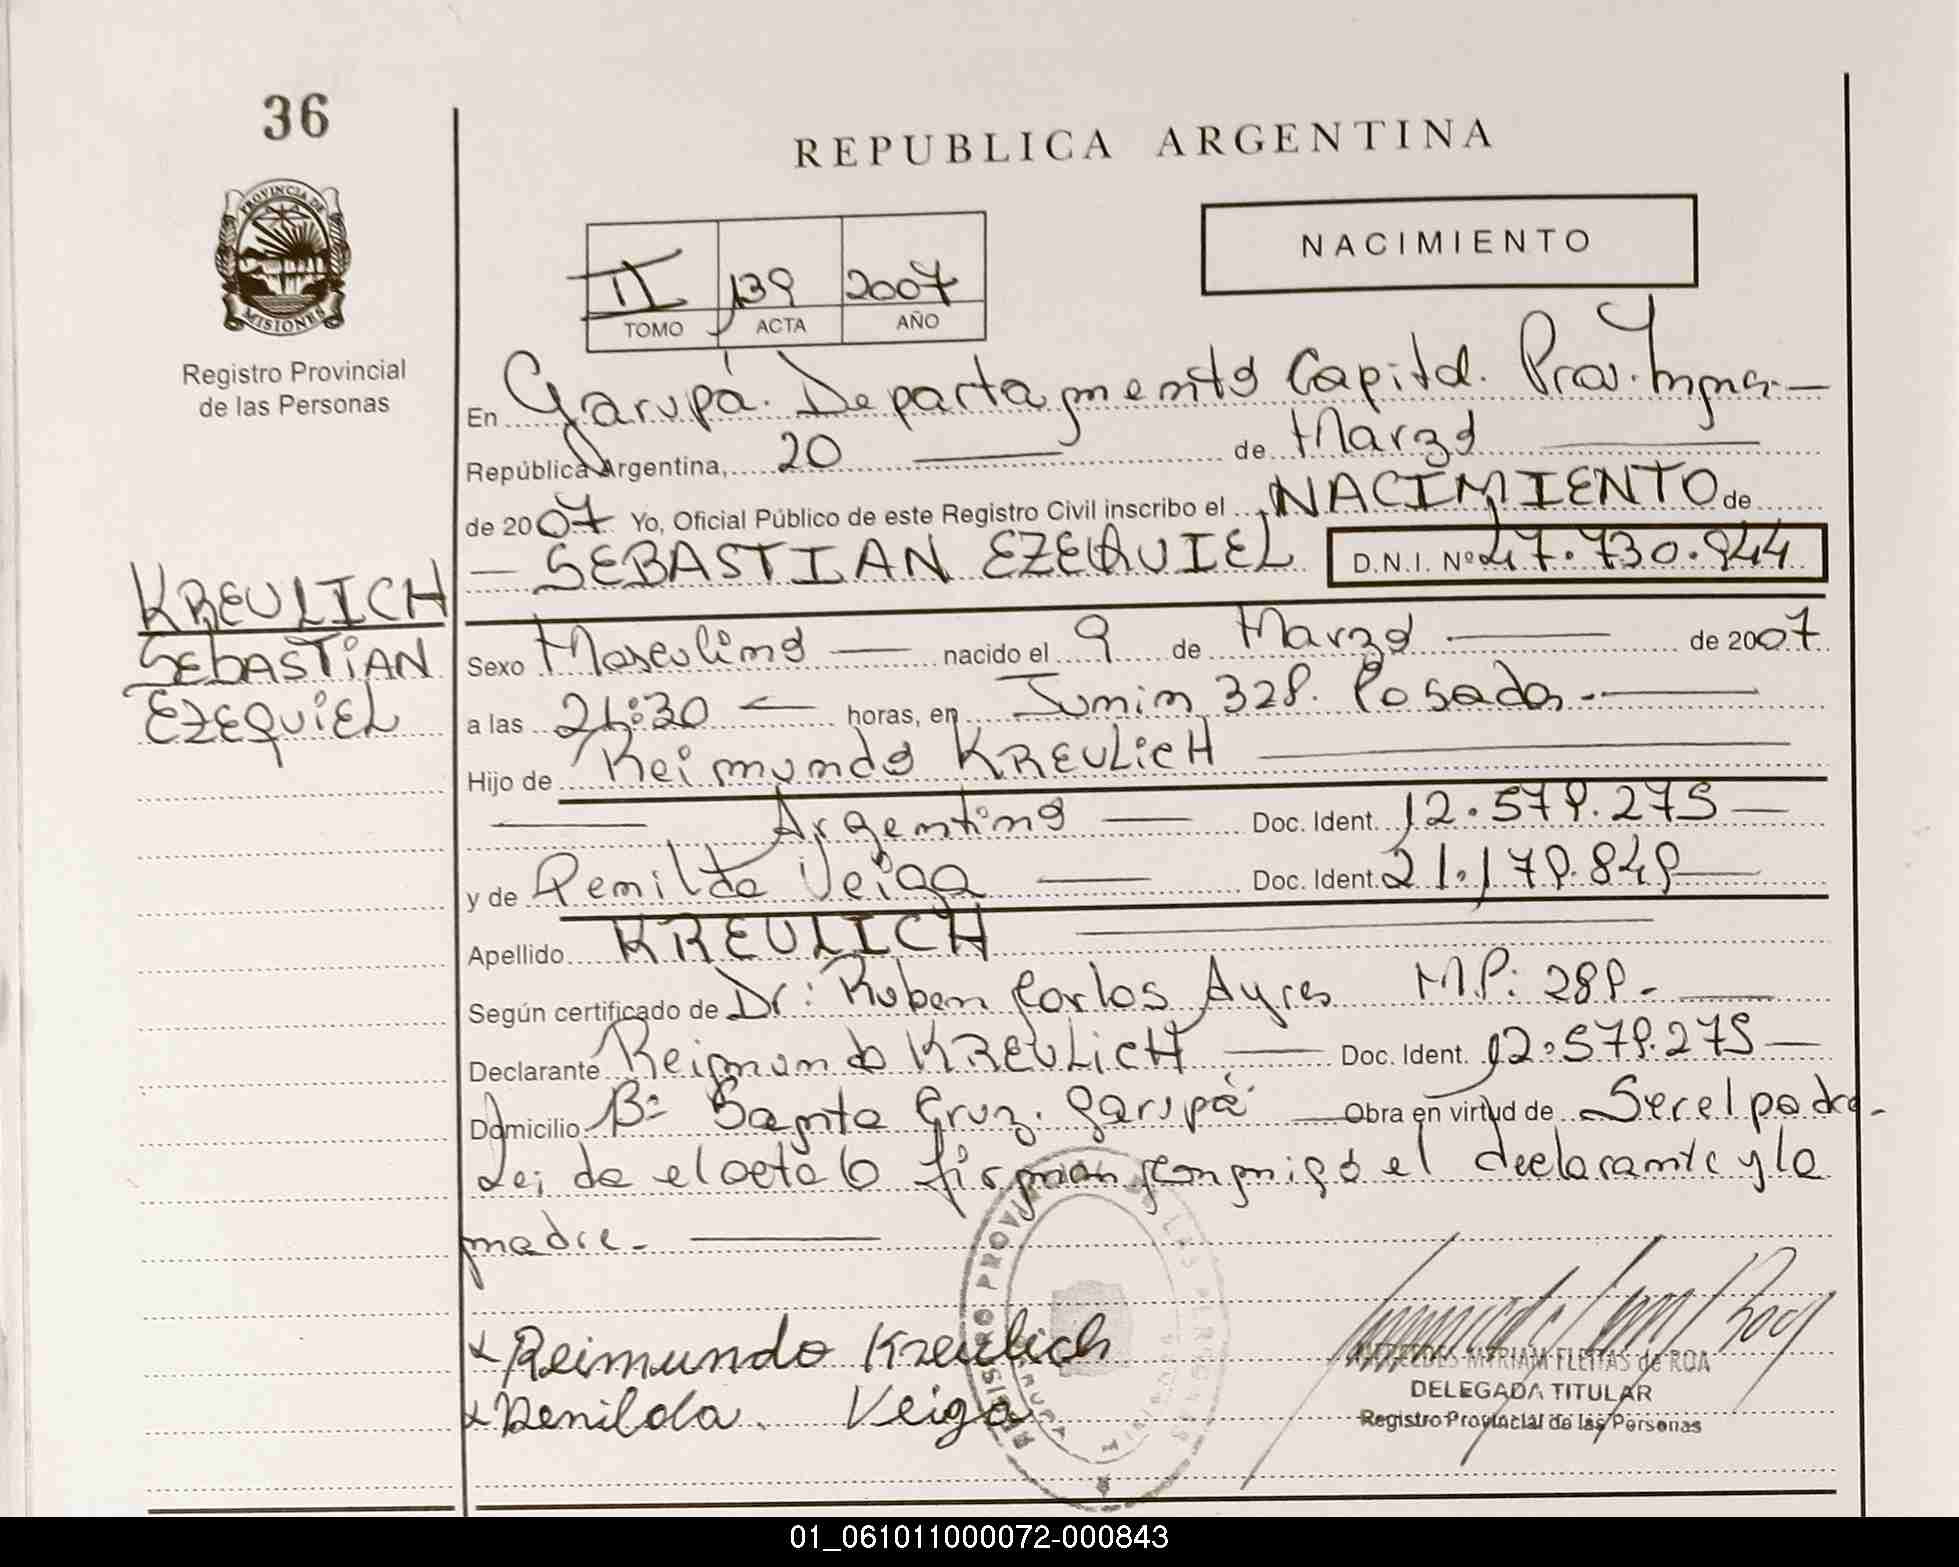 36
REPUBLICA ARGENTINA
PROVINCIA DE
MISIONES
Registro Provincial
de las Personas
NACIMIENTO
II 139 2007
TOMO ACTA AÑO
En Garupá. Departamento Capital. Prov.
República Argentina, 20 de Marzo
de 2007 Yo, Oficial Público de este Registro Civil inscribo el NACIMIENTO de
SEBASTIAN EZEQUIEL D.N.I. Nº 47.730.944
KREULICH
SEBASTIAN
EZEQUIEL
Sexo Masculino nacido el 9 de Marzo de 2007
a las 21:30 horas, en Junin 328. Posadas.
Hijo de Reimundo KREULICH
Argentino Doc. Ident. 12.579.275
y de Veiga Doc. Ident. 21.179.849
Apellido KREULICH
Según certificado de Dr: Ruben Carlos Ayres M.P: 289.
Declarante Reimundo KREULICH Doc. Ident. 12.579.275
Domicilio Bº Santa Cruz. Garupá Obra en virtud de Ser el padre.
Lei da el acta la firman conmigo el declarante y la
madre.
x Reimundo Kreulich
x Denilda. Veiga
MYRIAM FLEITAS de ROA
DELEGADA TITULAR
Registro Provincial de las Personas
01_061011000072-000843